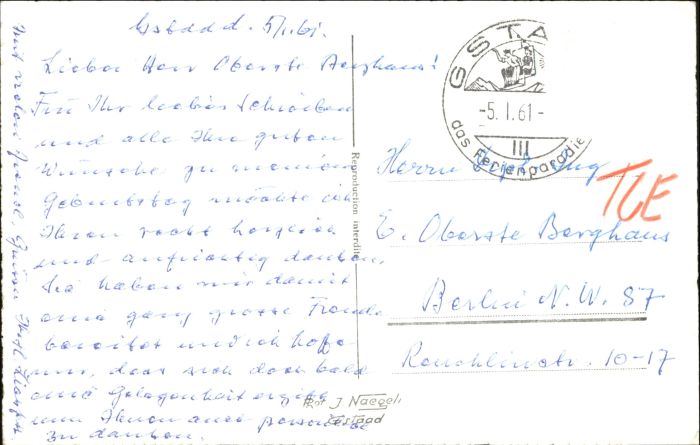 Gstaad d. 5/1.61.
Lieber Herr Oberste Berghaus!
Für Ihr liebes Schreiben
und alle Ihre guten
Wünsche zu meinem
Geburtstag möchte ich
Ihnen recht herzlich
und aufrichtig danken.
Sie haben mir damit
eine ganz grosse Freude
bereitet und ich hoffe
nur, dass sich doch bald
eine Gelegenheit ergibt
um Ihnen auch persönlich
zu danken.
Mit vielen Grüssen Ihr
Reproduction interdite
Phot J Naegeli
Gstaad
GSTA
-5.1.61-
III
das Ferienparadies
Herrn
TCE
E. Oberste Berghaus
Berlin N.W. 87
Reuchlinstr. 10-17